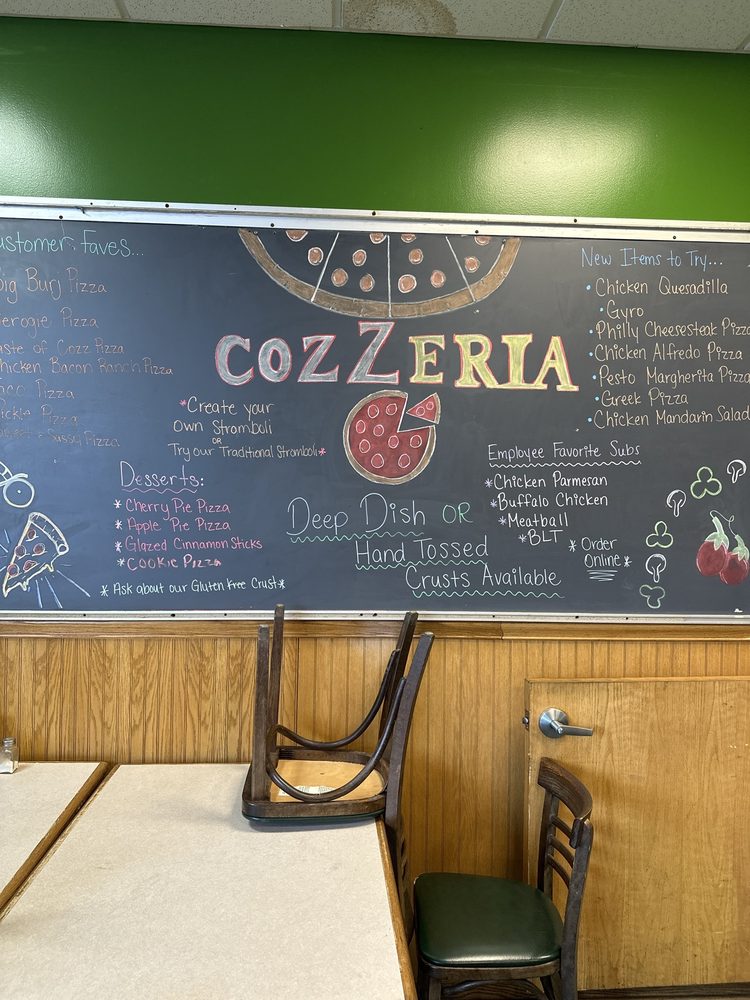 ustomer Faves...
ig Burj Pizza
erogie Pizza
aste of Cozz Pizza
hicken Bacon Ranch Pizza
aco Pizza
ickle Pizza
Sassy Pizza
COZZERIA
*Create your
own Stromboli
OR
Try our Traditional Stromboli*
Desserts:
* Cherry Pie Pizza
* Apple Pie Pizza
* Glazed Cinnamon Sticks
* Cookie Pizza
* Ask about our Gluten Free Crust*
Deep Dish OR
Hand Tossed
Crusts Available
New Items to Try...
• Chicken Quesadilla
• Gyro
• Philly Cheesesteak Pizza
• Chicken Alfredo Pizza
• Pesto Margherita Pizza
• Greek Pizza
• Chicken Mandarin Salad
Employee Favorite Subs
*Chicken Parmesan
*Buffalo Chicken
*Meatball
*BLT
* Order
Online *